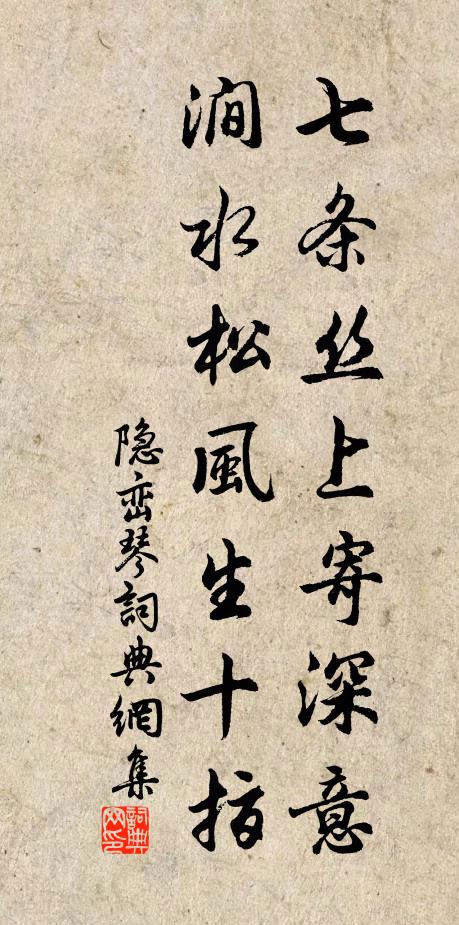 七条丝上寄深意
涧水松風生十指
隐峦琴詞典網集
詞典
网印